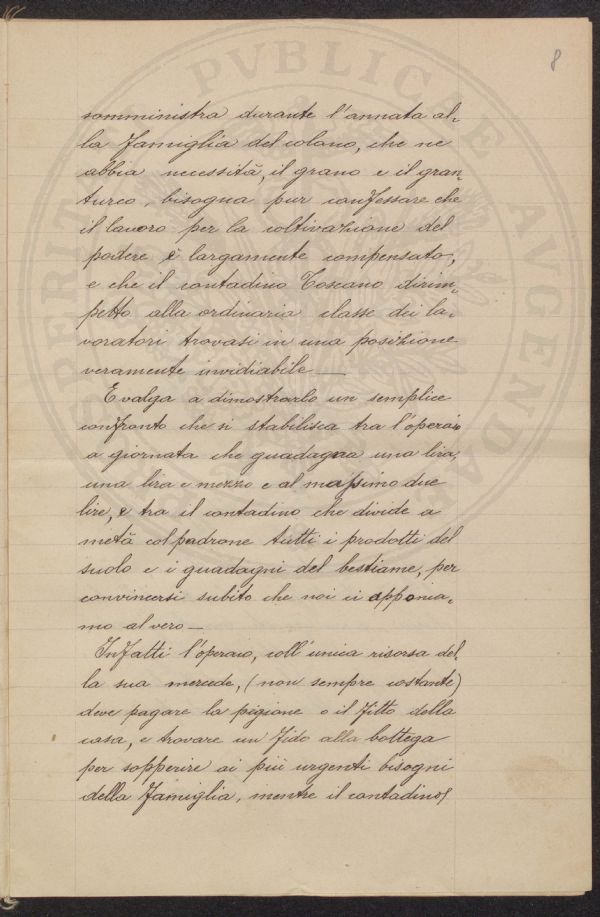 8
somministra durante l'annata al=
la famiglia del colono, che ne
abbia necessità, il grano e il gran=
turco, bisogna pur confessare che
il lavoro per la coltivazione del
podere è largamente compensato,
e che il contadino Toscano dirim=
petto alla ordinaria classe dei la=
voratori trovasi in una posizione
veramente invidiabile —
E valga a dimostrarlo un semplice
confronto che si stabilisca tra l'operaio
a giornata che guadagna una lira,
una lira e mezzo e al massimo due
lire, e tra il contadino che divide a
metà col padrone tutti i prodotti del
suolo e i guadagni del bestiame, per
convincersi subito che noi ci apponia=
mo al vero —
Infatti l'operaio, coll'unica risorsa del=
la sua mercede, (non sempre costante)
deve pagare la pigione o il fitto della
casa, e trovare un fido alla bottega
per sopperire ai più urgenti bisogni
della famiglia, mentre il contadino
PVBLICAE AVGENDAE